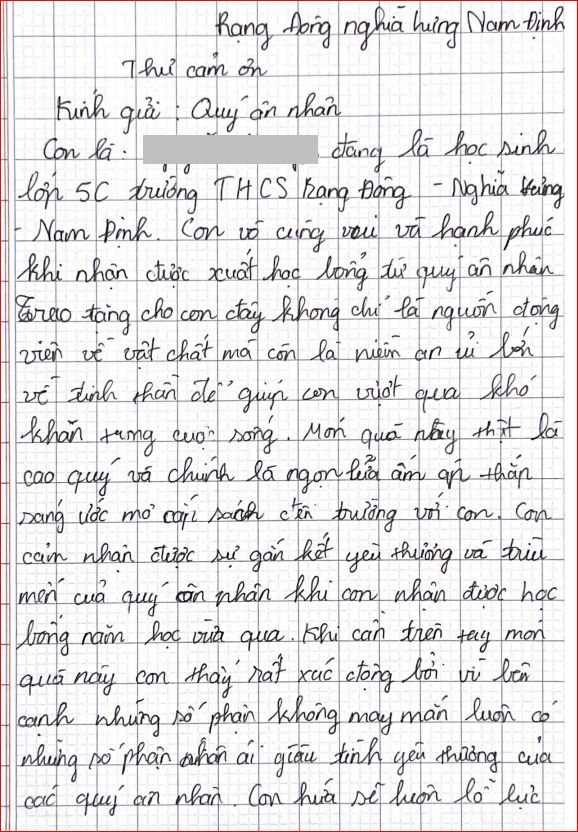 Rạng Đông nghĩa hưng Nam Định
Thư cảm ơn
Kính gửi : Quý ân nhân
Con là : đang là học sinh
lớp 5C trường THCS Rạng Đông - Nghĩa Hưng
- Nam Định. Con vô cùng vui và hạnh phúc
khi nhận được xuất học bổng từ quý ân nhân
trao tặng cho con đây không chỉ là nguồn động
viên về vật chất mà còn là niềm an ủi lớn
về tinh thần để giúp con vượt qua khó
khăn trong cuộc sống. Món quà này thật là
cao quý và chính là ngọn lửa ấm áp thắp
sáng ước mơ cắp sách đến trường với con. Con
cảm nhận được sự gắn kết yêu thương và trìu
mến của quý ân nhân khi con nhận được học
bổng năm học vừa qua. Khi cần trên tay món
quà này con thấy rất xúc động bởi vì bên
cạnh những số phận không may mắn luôn có
những số phận nhân ái giàu tình yêu thương của
các quý ân nhân. Con hứa sẽ luôn lỗ lực